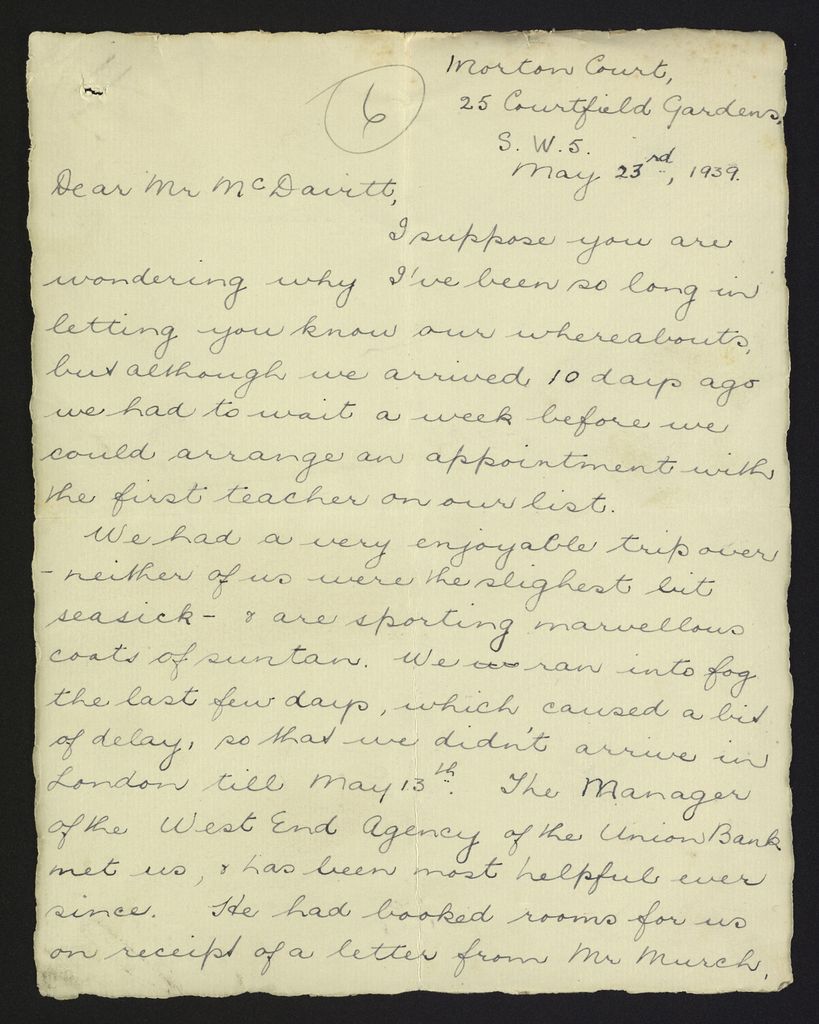 6
Morton Court,
25 Courtfield Gardens,
S. W. 5.
May 23rd, 1939.
Dear Mr McDavitt,
I suppose you are
wondering why I've been so long in
letting you know our whereabouts,
but although we arrived 10 days ago
we had to wait a week before we
could arrange an appointment with
the first teacher on our list.
We had a very enjoyable trip over
- neither of us were the slighest bit
seasick - & are sporting marvellous
coats of suntan. We ran into fog
the last few days, which caused a bit
of delay, so that we didn't arrive in
London till May 13th. The Manager
of the West End Agency of the Union Bank
met us, & has been most helpful ever
since. He had booked rooms for us
on receipt of a letter from Mr Murch,